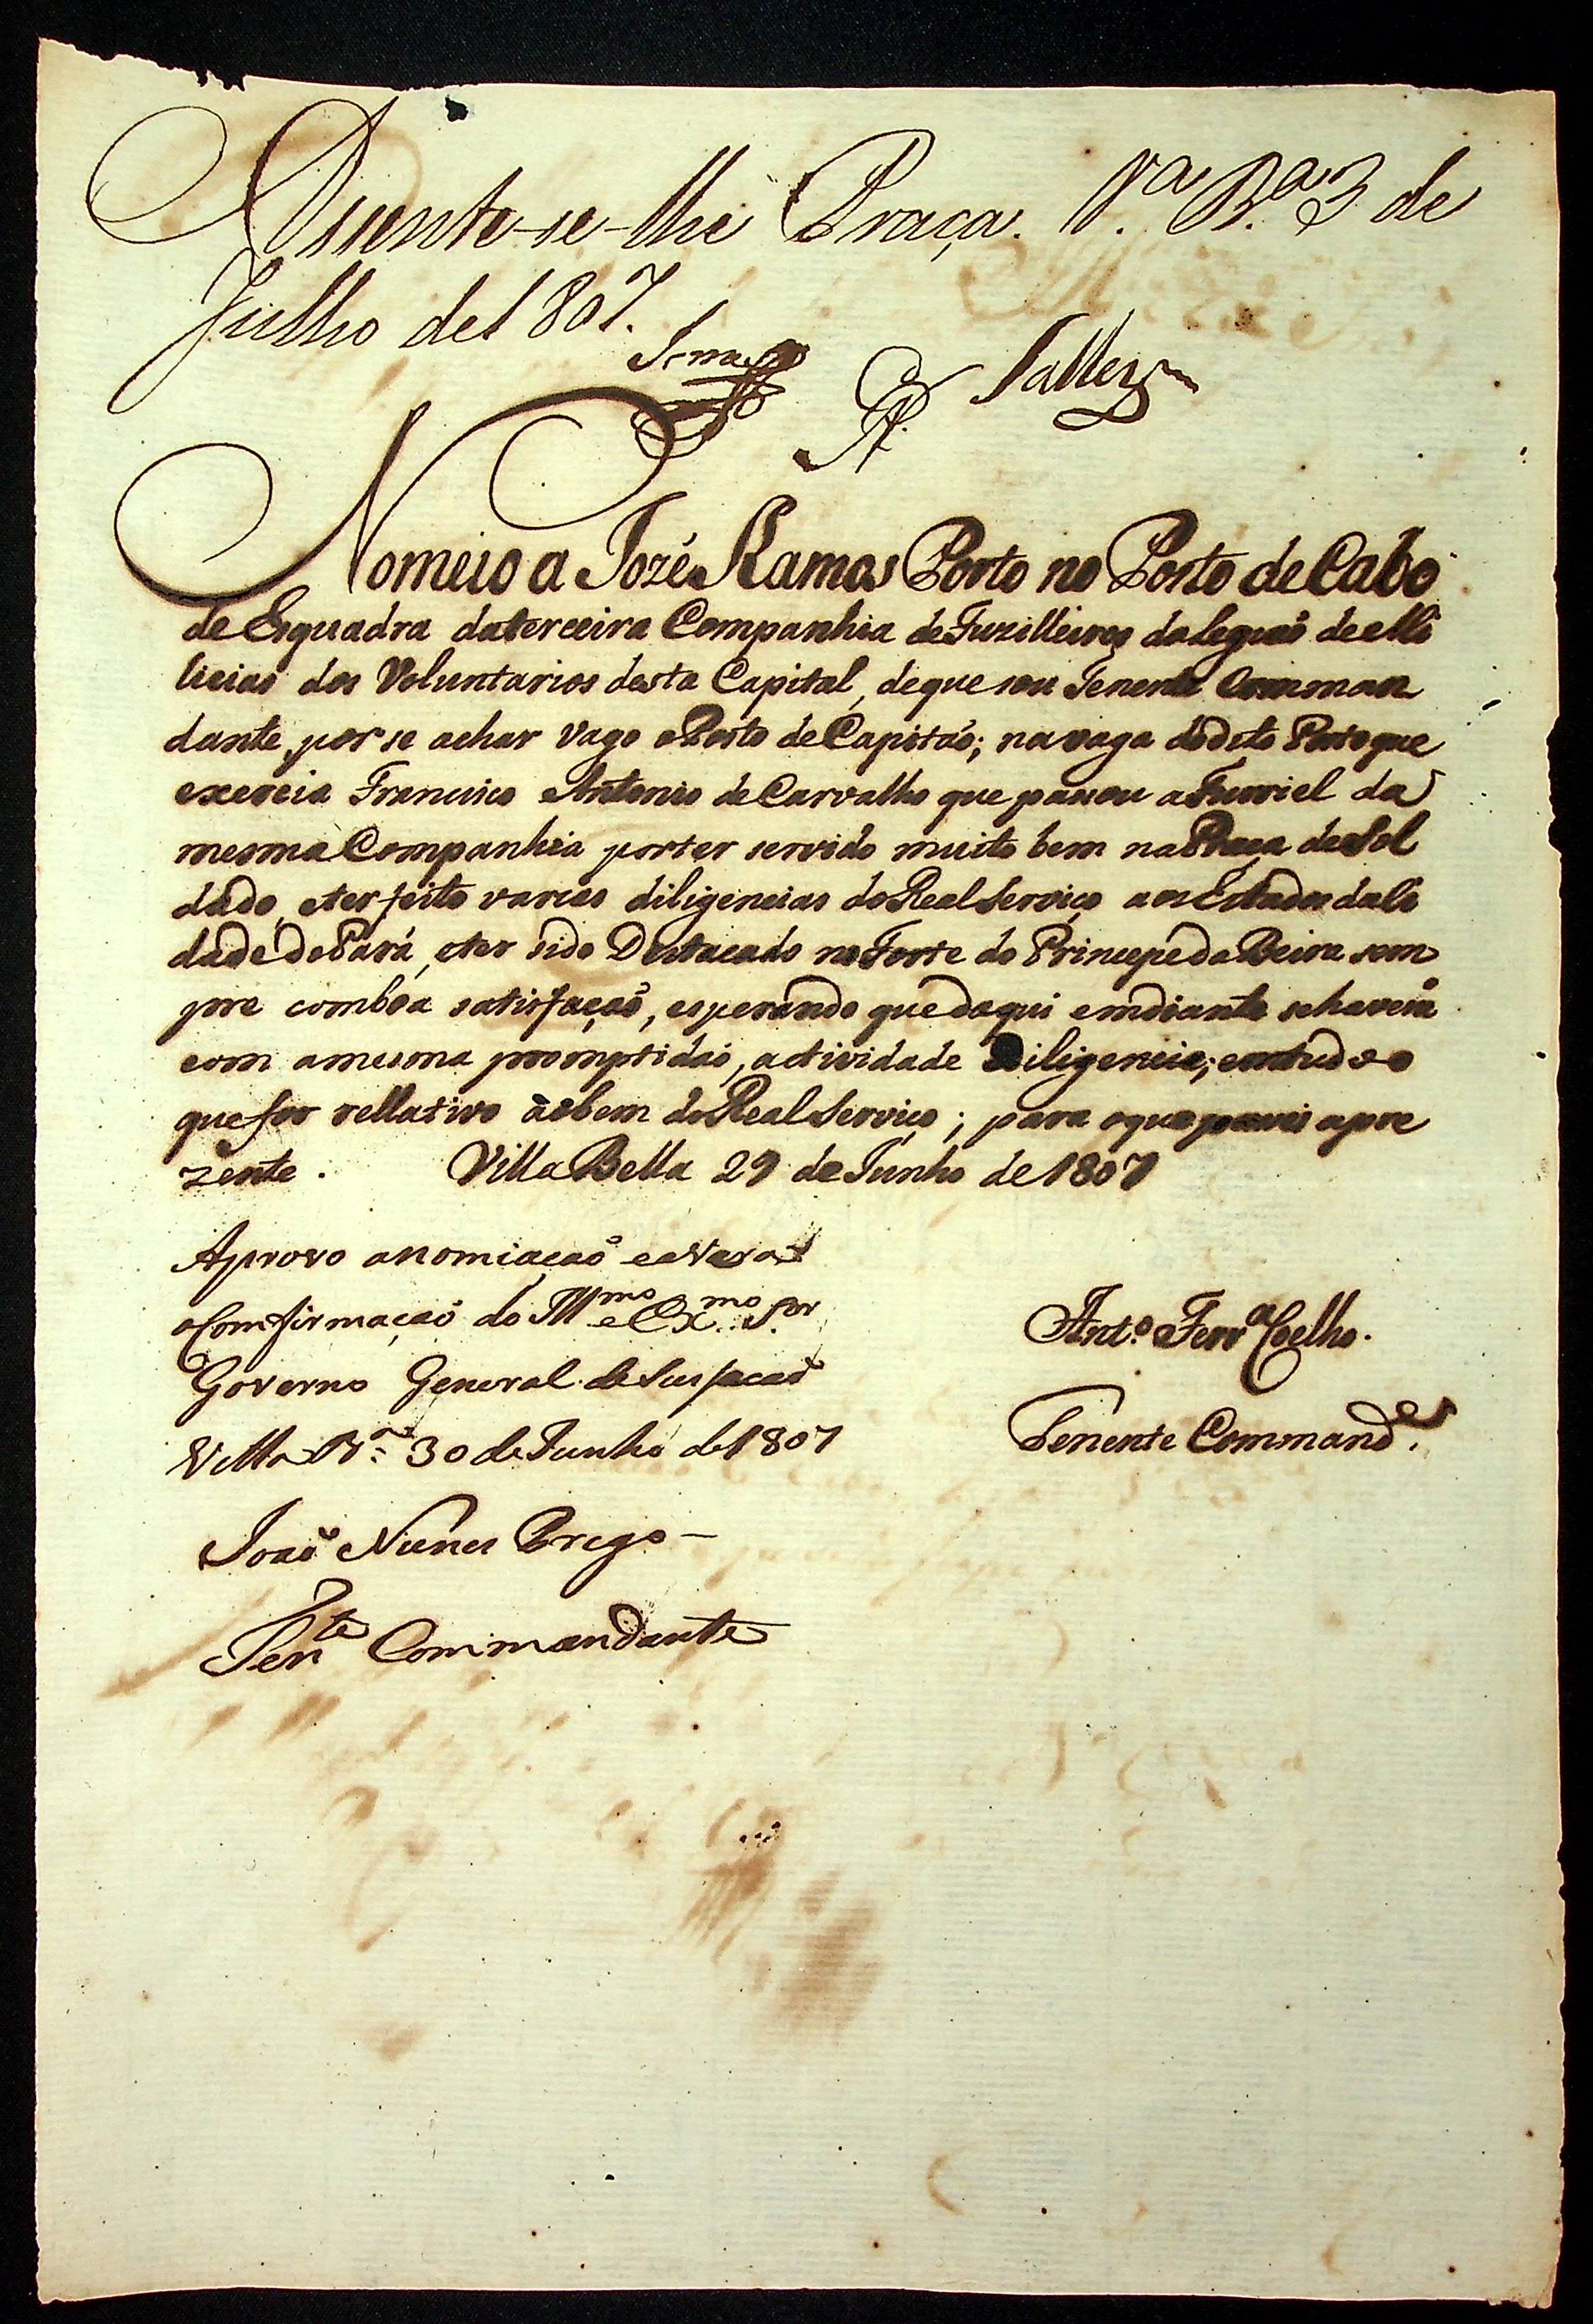 Assente-se-lhe Praça. V.ª B.ª 3 de
Julho de 1807.
Nomeio a Jozé Ramos Porto no Posto de Cabo
de Esquadra da terceira Companhia de Fuzilleiros da Legiaõ de Mi
licias dos Voluntarios desta Capital, de que sou Tenente Comman
dante, por se achar vago o Posto de Capitaõ; na vaga do dito Posto que
exercia Francisco Antonio de Carvalho que passou a Furriel da
mesma Companhia por ter servido muito bem na Praça de Sol
dado, e ter feito varias diligencias do Real Serviço aos Estados da Ci
dade do Pará, e ter sido Destacado no Forte do Principe da Beira sem
pre com boa satisfaçaõ, esperando que daqui em diante se haverá
com a mesma promptidaõ, actividade Diligencia; em tudo o
que for rellativo ao bem do Real Serviço; para o que passei a pre
zente. Villa Bella 29 de Junho de 1807
Aprovo a nomiaçaõ
a Comfirmaçaõ do Illmo e Exmo Sor
Governo General de Sucsacaõ
Villa Bª 30 de Junho de 1807
Antº Ferrª Coelho.
Tenente Commande.
Joaõ Nunes Prego
Tente Commandante